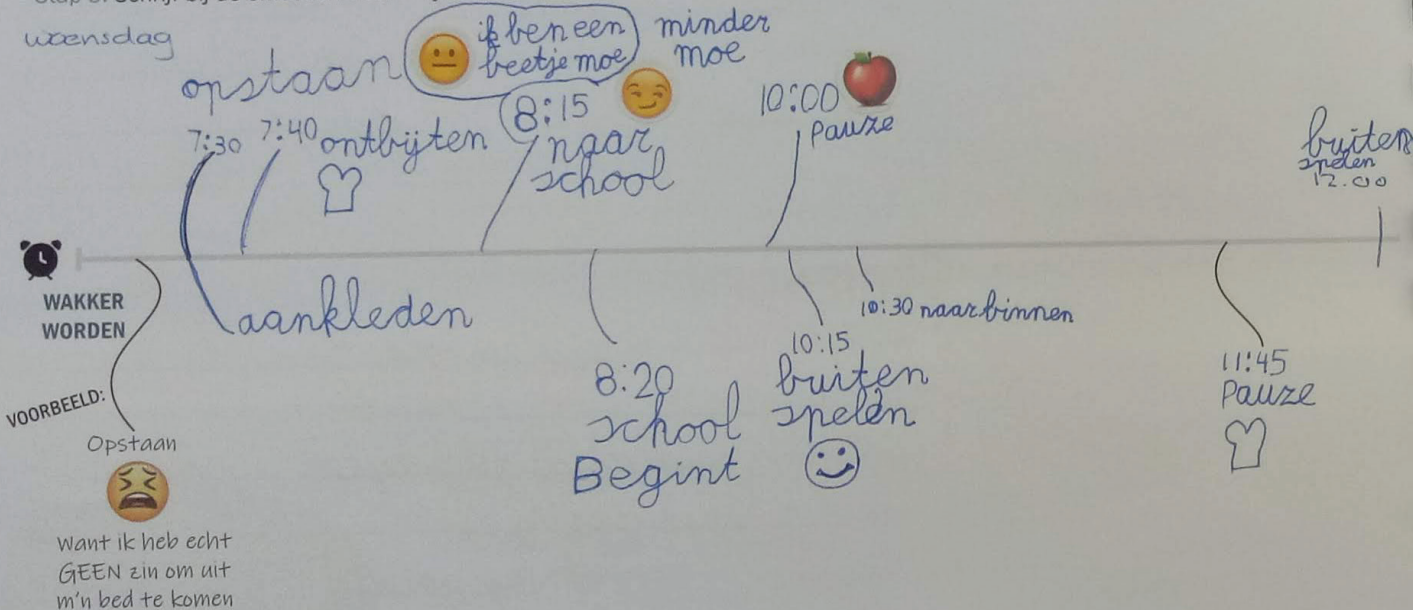 woensdag
opstaan
ik ben een
beetje moe
minder
moe
7:30
7:40 ontbijten
8:15
naar
school
10:00
pauze
buiten
spelen
12.00
WAKKER
WORDEN
aankleden
8:20
school
Begint
10:15
buiten
spelen
10:30 naar binnen
11:45
Pauze
VOORBEELD:
Opstaan
Want ik heb echt
GEEN zin om uit
m'n bed te komen